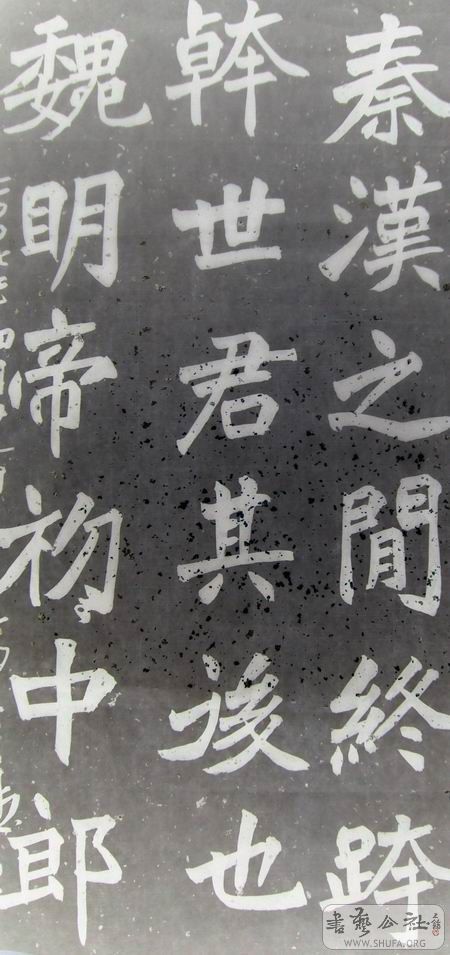 秦漢之閒終跨
幹世君其後也
魏明帝初中郎
書藝公社
WWW.SHUFA.ORG